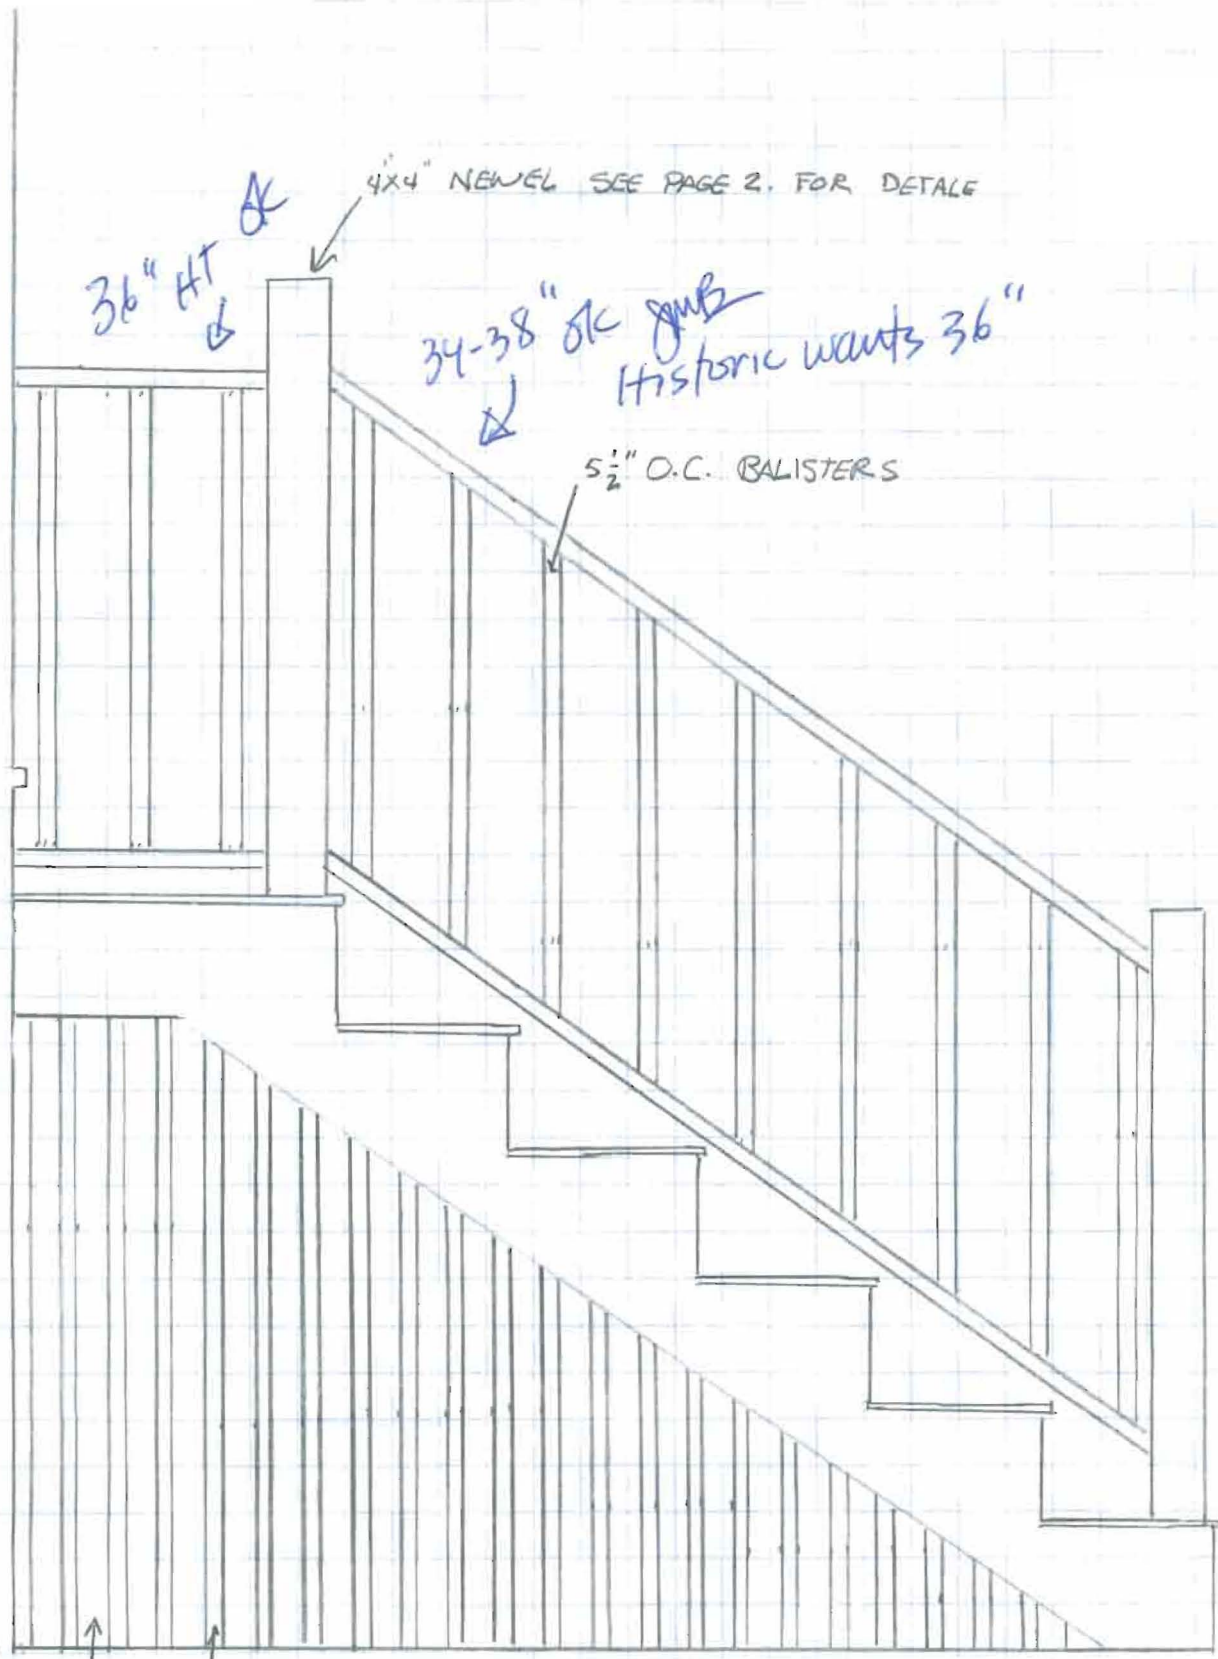 4"x4" NEWEL SEE PAGE 2. FOR DETALE
36" HT OK
34-38" OK JMB
Historic wants 36"
5 1/2" O.C. BALISTERS